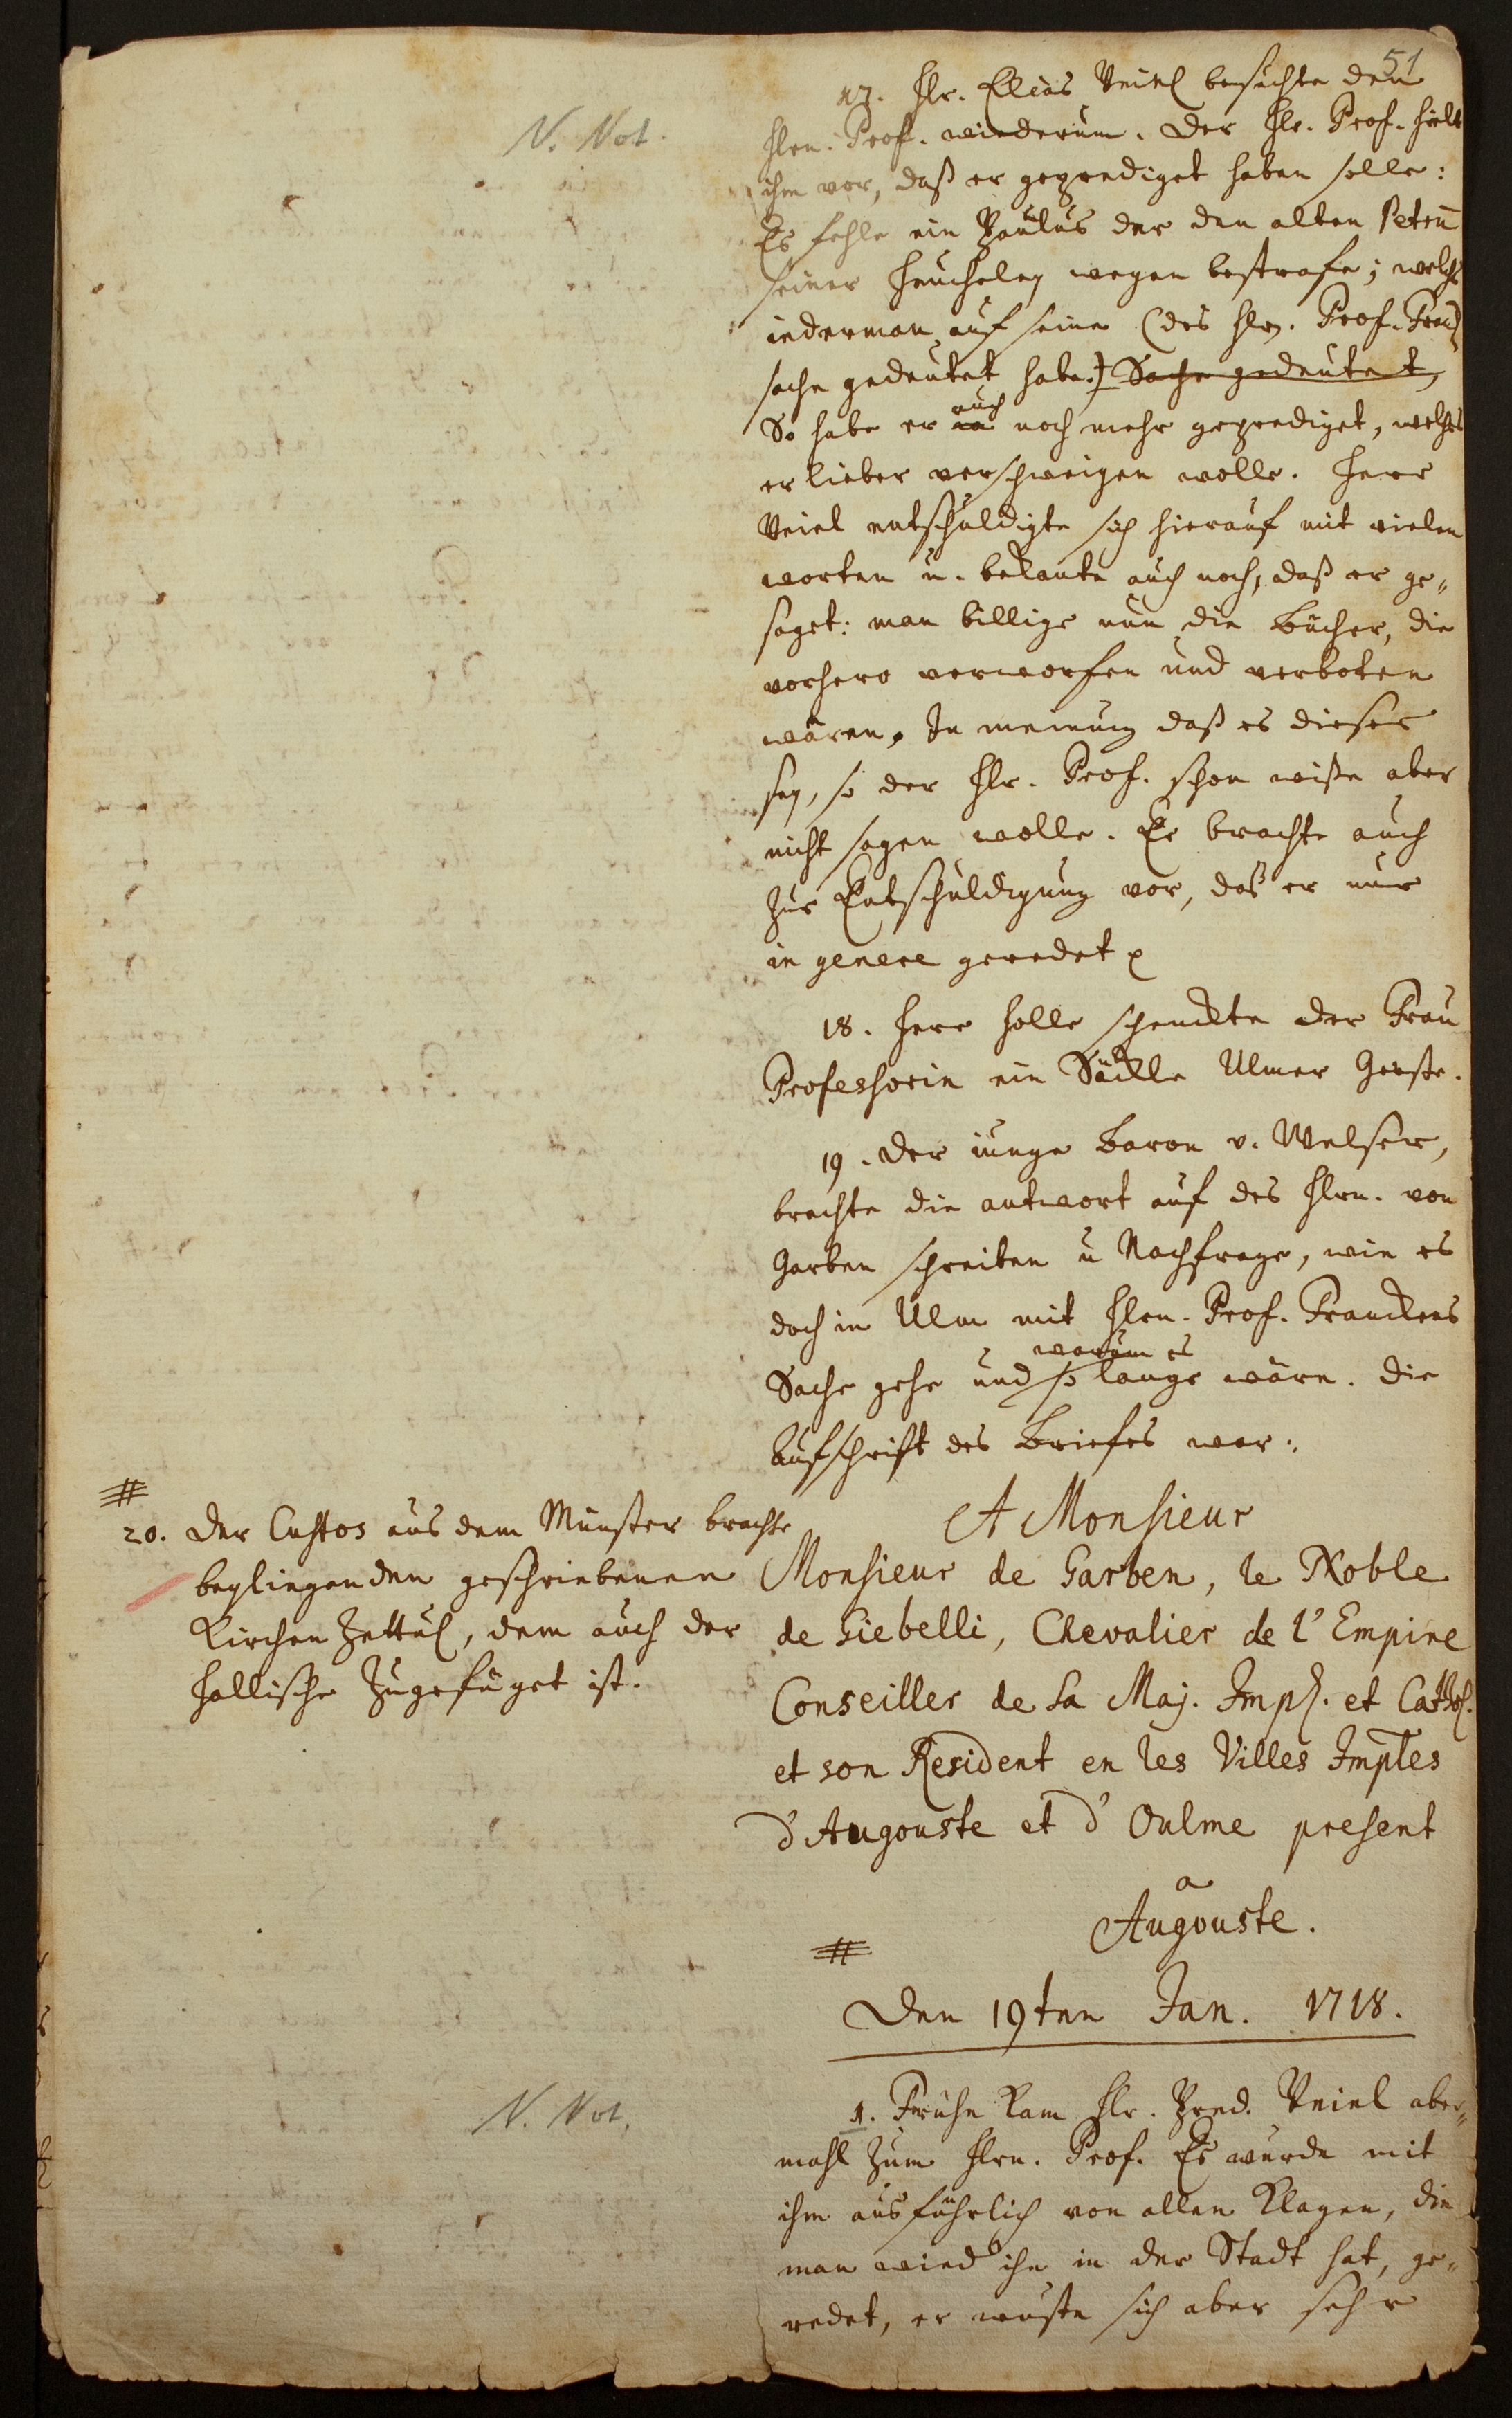 51
N. Not.
17. Hr. Elias Veiel besuchte den
Hrn. Prof. wiederum. Der Hr. Prof. hielt
ihm vor, daß er geprediget haben solle:
Es fehle ein Paulus der den alten Petrū
seiner Heucheley wegen bestrafe; welchs
iederman auf seine (des Hrn. Prof. Franck
sache gedeutet habe.) Sache gedeutet,
So habe er auch noch mehr geprediget, welches
er lieber verschweigen wolle. Herr
Veiel entschuldigte sich hierauf mit vielen
worten u. bekante auch noch, daß er ge„
saget: man billige nun die Bücher, die
vorhero verworfen und verboten
wären, In meinung daß es dieses
sey, so der Hr. Prof. schon wiße aber
nicht sagen wolle. Er brachte auch
zur Entschuldigung vor, daß er nur
in genere geredet
18. Herr Holle schenckte der Frau
Professorin ein Säckle Ulmer Gerste.
19. Der iunge Baron v. Welser,
brachte die antwort auf des Hrn. von
Garben schreiben u Nachfrage, wie es
doch in Ulm mit Hrn. Prof. Franckens
Sache gehe und warum es so lange wäre. Die
Aufschrift des Briefes war:
A Monsieur
Monsieur de Garben, le Noble
de Giebelli, Chevalier de l'Empire
Conseiller de Sa Maj. Impl. et Cathol.
et son Resident en les Villes Imples
d'Augouste et d'Oulme present
a
Augouste.
#
20. Der Custos aus dem Münster brachte
beyliegenden geschriebenen
Kirchen Zettul, dem auch der
Hallische zugefüget ist.
#
Den 19ten Jan. 1718.
N. Not.
1. Frühe kam Hr. Pred. Veiel aber„
mahl zum Hrn. Prof. Es wurde mit
ihm ausführlich von allen Klagen, die
man wieder ihn in der Stadt hat, ge„
redet, er wuste sich aber sehr